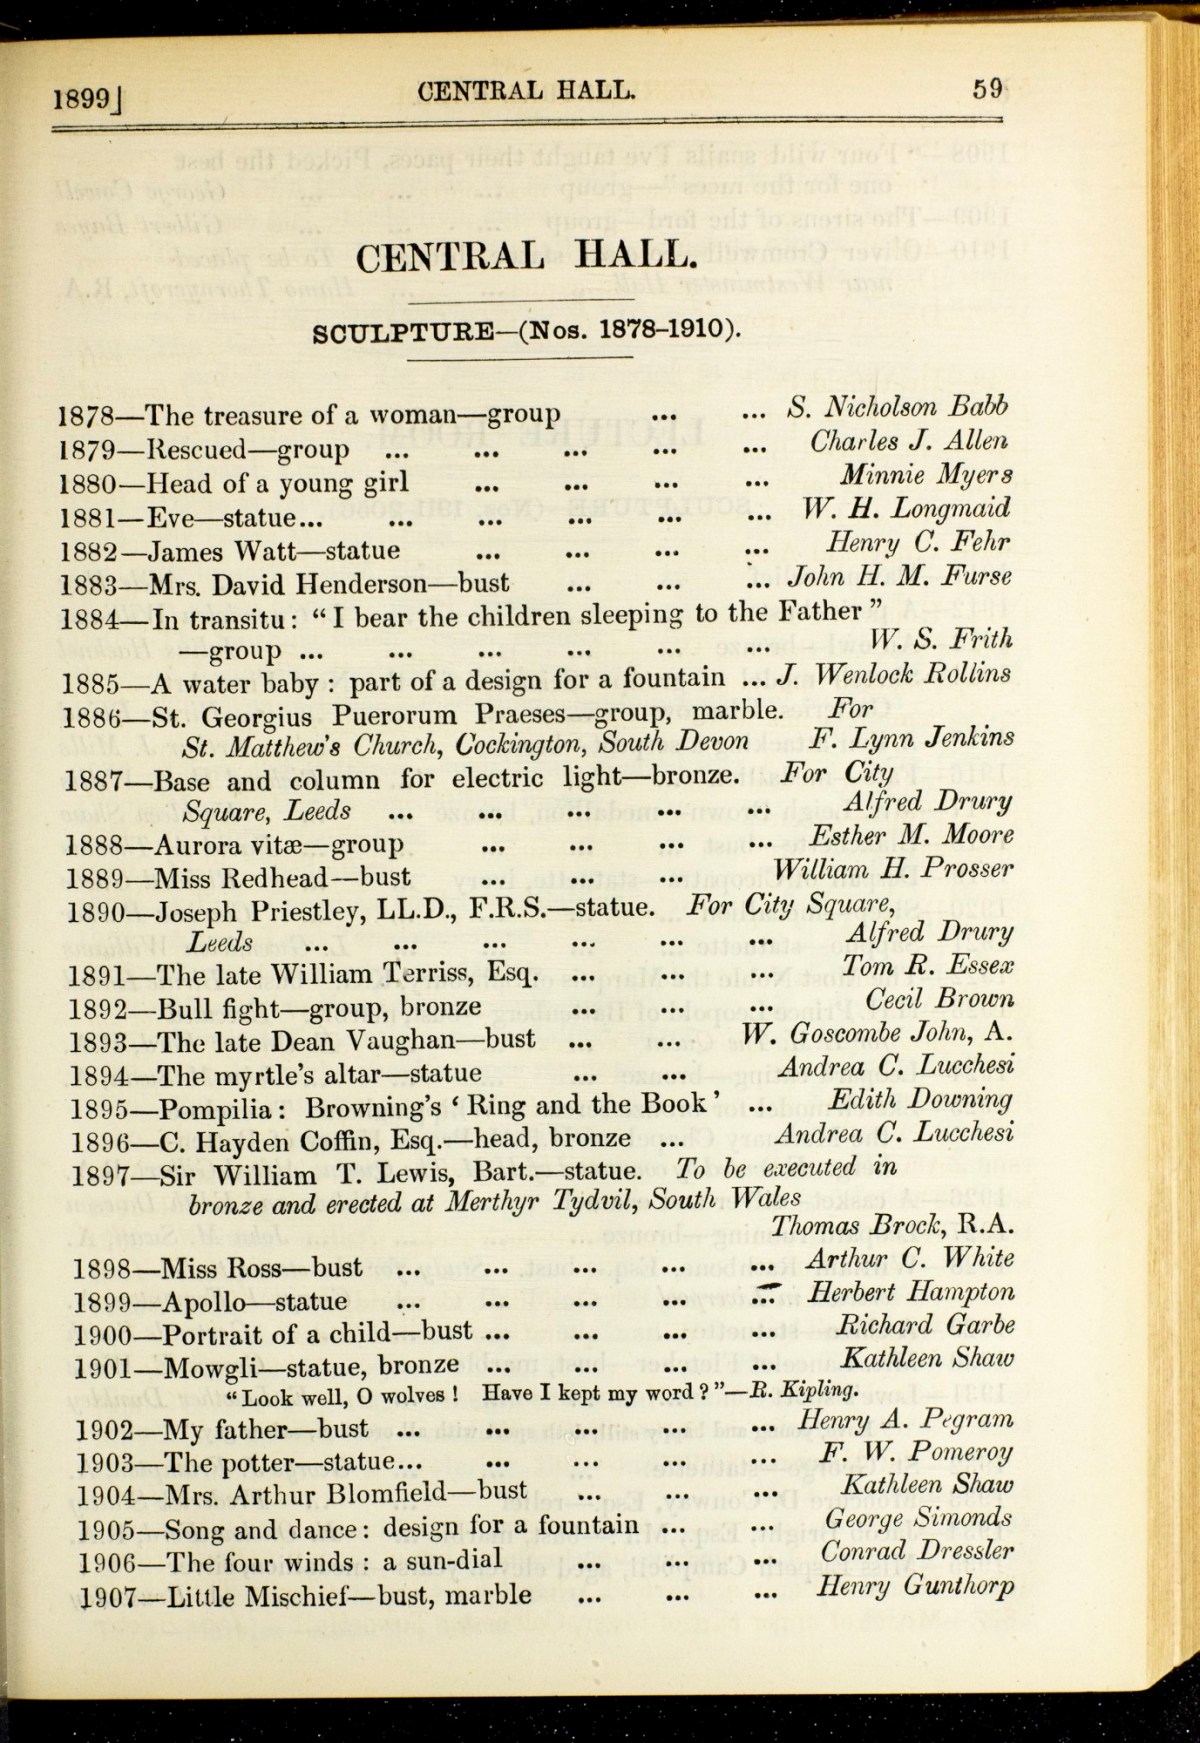 1899] CENTRAL HALL. 59
CENTRAL HALL.
SCULPTURE—(Nos. 1878–1910).
1878—The treasure of a woman—group ... ... S. Nicholson Babb
1879—Rescued—group ... ... ... ... ... Charles J. Allen
1880—Head of a young girl ... ... ... ... Minnie Myers
1881—Eve—statue... ... ... ... ... ... W. H. Longmaid
1882—James Watt—statue ... ... ... ... Henry C. Fehr
1883—Mrs. David Henderson—bust ... ... ... John H. M. Furse
1884—In transitu: “I bear the children sleeping to the Father”
—group ... ... ... ... ... ... W. S. Frith
1885—A water baby: part of a design for a fountain ... J. Wenlock Rollins
1886—St. Georgius Puerorum Praeses—group, marble. For
St. Matthew's Church, Cockington, South Devon F. Lynn Jenkins
1887—Base and column for electric light—bronze. For City
Square, Leeds ... ... ... ... ... Alfred Drury
1888—Aurora vitæ—group ... ... ... ... Esther M. Moore
1889—Miss Redhead—bust ... ... ... William H. Prosser
1890—Joseph Priestley, LL.D., F.R.S.—statue. For City Square,
Leeds ... ... ... ... ... ... Alfred Drury
1891—The late William Terriss, Esq. ... ... ... Tom R. Essex
1892—Bull fight—group, bronze ... ... ... Cecil Brown
1893—The late Dean Vaughan—bust ... ... W. Goscombe John, A.
1894—The myrtle's altar—statue ... ... Andrea C. Lucchesi
1895—Pompilia: Browning's ‘Ring and the Book’ ... Edith Downing
1896—C. Hayden Coffin, Esq.—head, bronze ... Andrea C. Lucchesi
1897—Sir William T. Lewis, Bart.—statue. To be executed in
bronze and erected at Merthyr Tydvil, South Wales
Thomas Brock, R.A.
1898—Miss Ross—bust ... ... ... ... ... Arthur C. White
1899—Apollo—statue ... ... ... ... ... Herbert Hampton
1900—Portrait of a child—bust ... ... ... ... Richard Garbe
1901—Mowgli—statue, bronze ... ... ... ... Kathleen Shaw
“Look well, O wolves! Have I kept my word?”—R. Kipling.
1902—My father—bust ... ... ... ... ... Henry A. Pegram
1903—The potter—statue... ... ... ... ... F. W. Pomeroy
1904—Mrs. Arthur Blomfield—bust ... ... ... Kathleen Shaw
1905—Song and dance: design for a fountain ... ... George Simonds
1906—The four winds: a sun-dial ... ... ... Conrad Dressler
1907—Little Mischief—bust, marble ... ... ... Henry Gunthorp